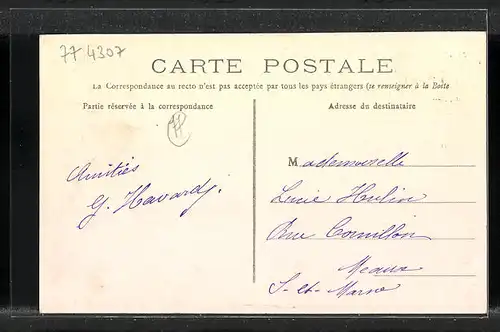 77 4307
CARTE POSTALE
La Correspondance au recto n'est pas acceptée par tous les pays étrangers (se renseigner à la Boîte
Partie réservée à la correspondance
Adresse du destinataire
77
Amitiés
G. Havard
Mademoiselle
Hulin
Rue Cornillon
Meaux
S-et-Marne